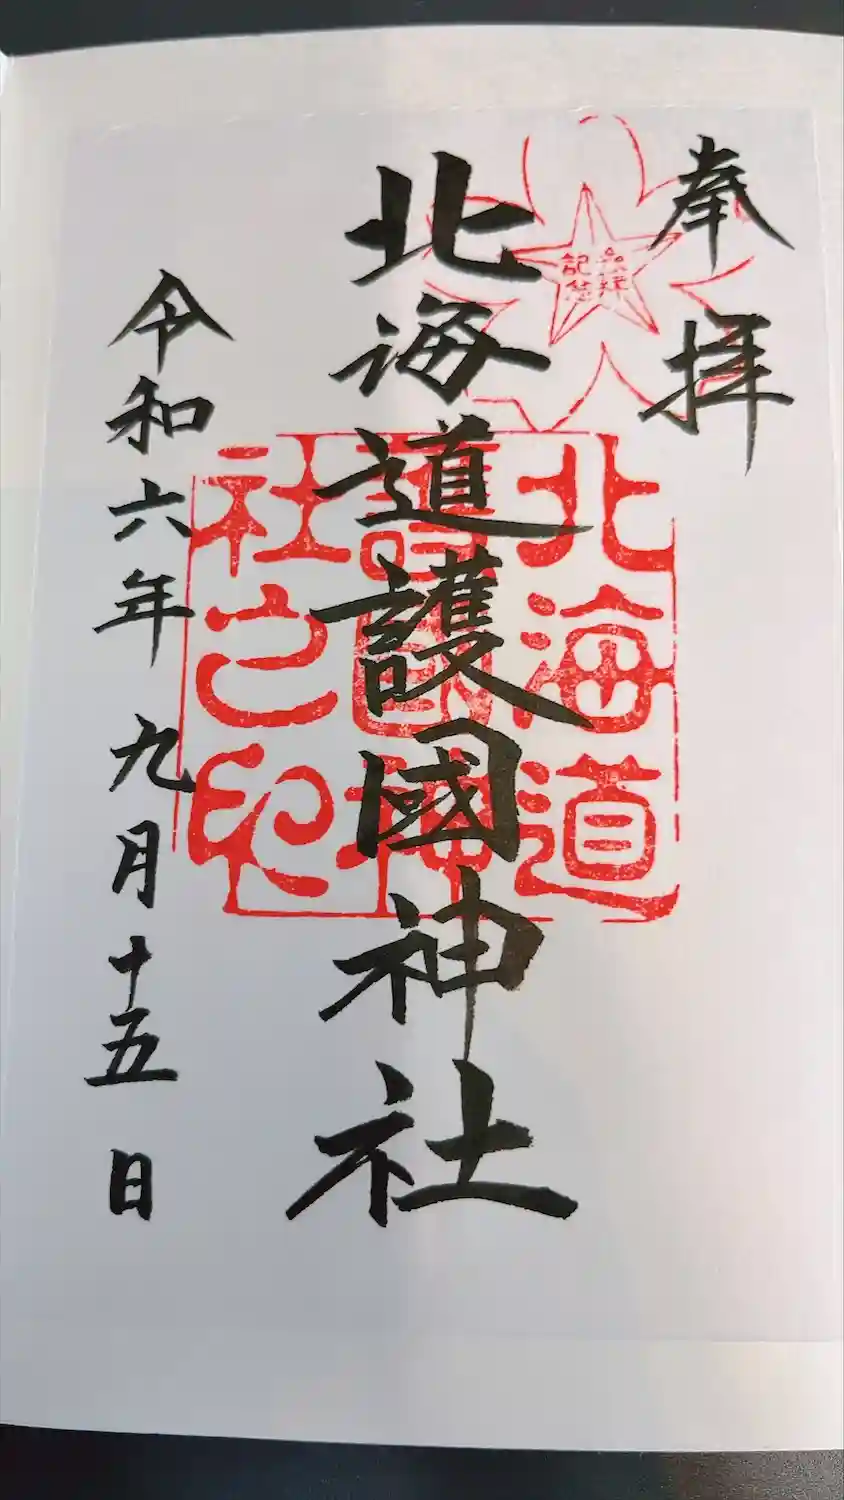 奉拝
参拝
記念
北海道護國神社
北海道
護國神
社之印
令和六年九月十五日